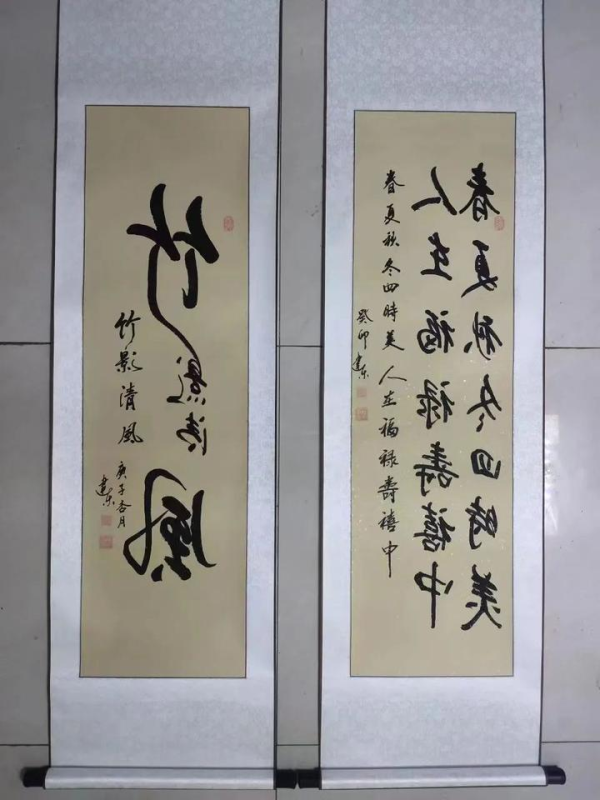 春夏秋冬四時美
人在福禄壽禧中
春夏秋冬四時美人在福禄壽禧中
癸卯建东
竹影清風
竹影清風
庚子杏月
建东